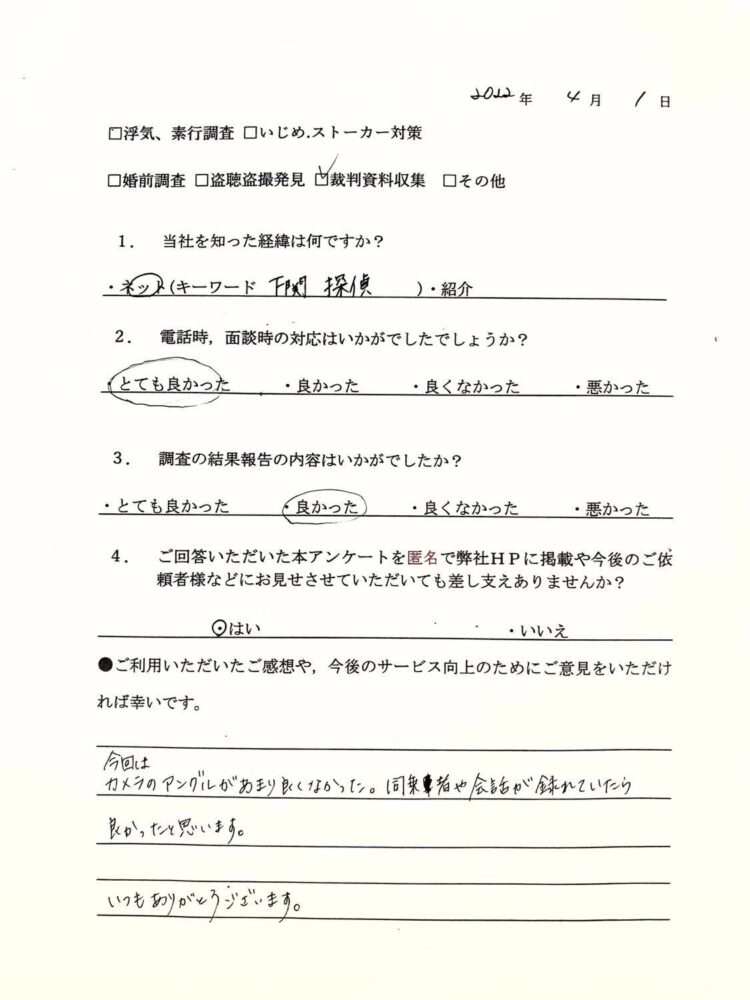 2022年 4月 1日
□浮気、素行調査 □いじめ.ストーカー対策
□婚前調査 □盗聴盗撮発見 ☑裁判資料収集 □その他
1． 当社を知った経緯は何ですか？
・ネット(キーワード 下関 探偵 )・紹介
2． 電話時，面談時の対応はいかがでしたでしょうか？
・とても良かった ・良かった ・良くなかった ・悪かった
3． 調査の結果報告の内容はいかがでしたか？
・とても良かった ・良かった ・良くなかった ・悪かった
4． ご回答いただいた本アンケートを匿名で弊社ＨＰに掲載や今後のご依
頼者様などにお見せさせていただいても差し支えありませんか？
・はい ・いいえ
●ご利用いただいたご感想や，今後のサービス向上のためにご意見をいただけ
れば幸いです。
今回は
カメラのアングルがあまり良くなかった。同乗者や会話が録れていたら
良かったと思います。
いつもありがとうございます。